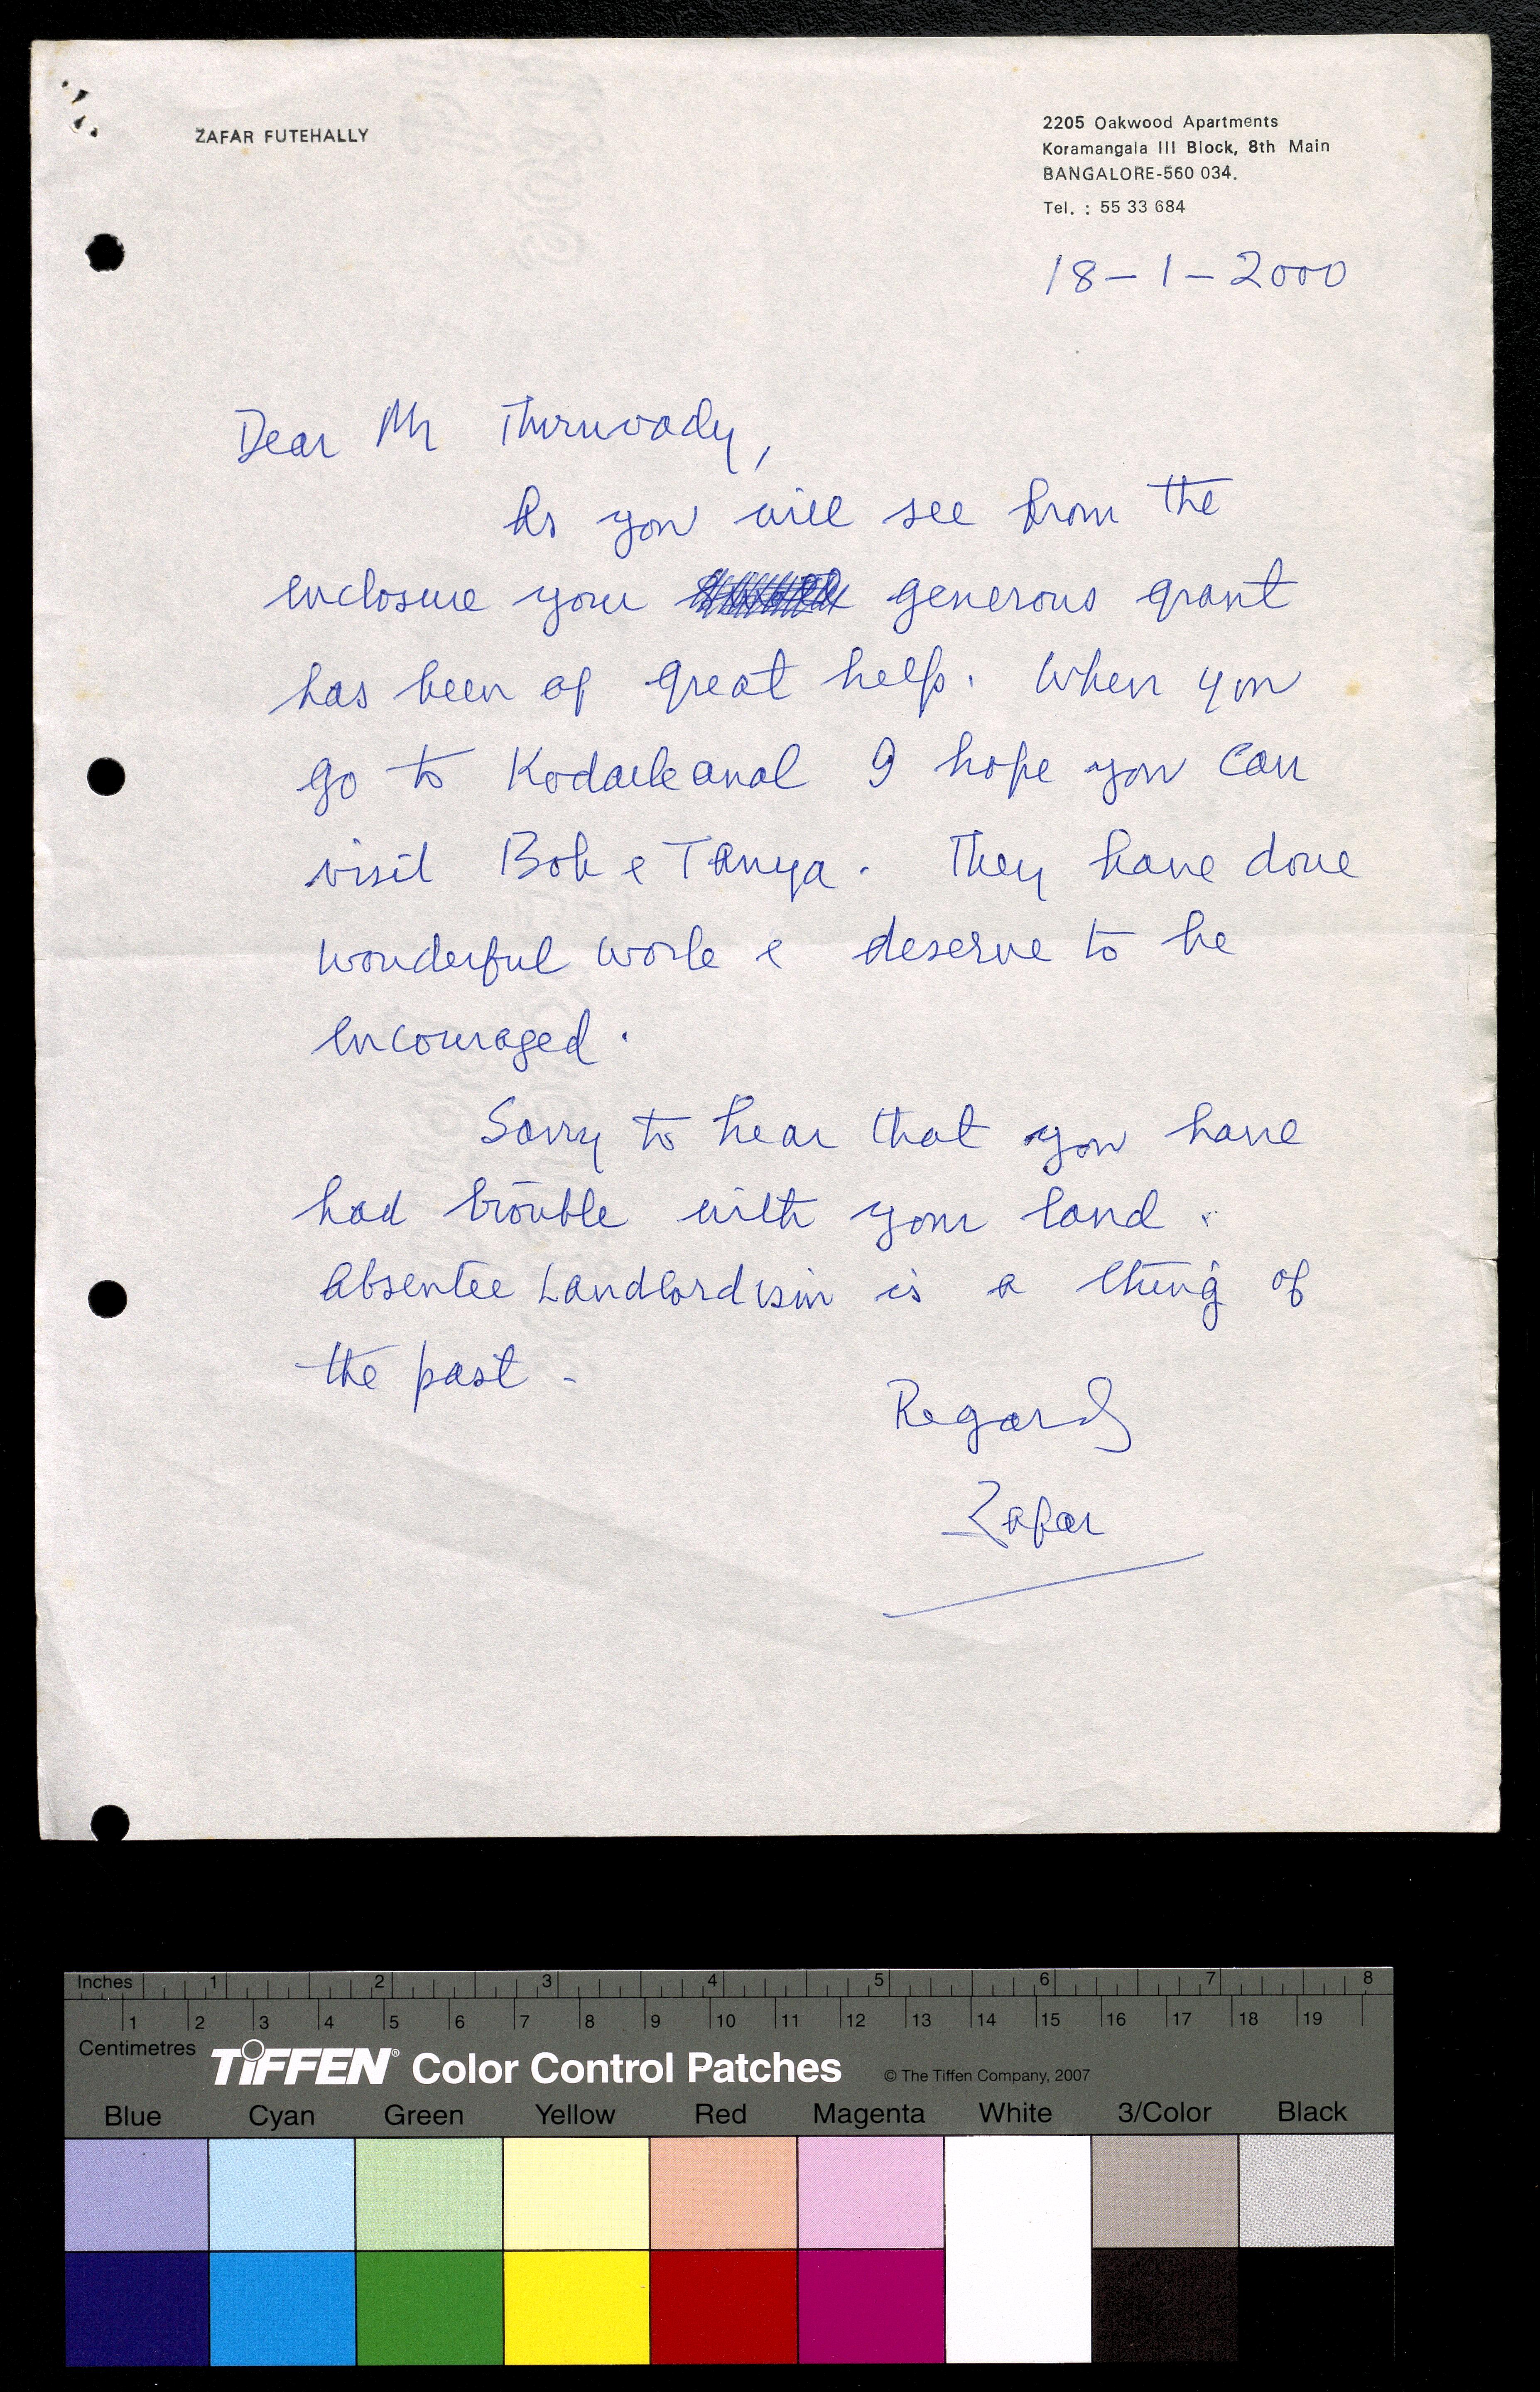 ZAFAR FUTEHALLY
2205 Oakwood Apartments
Koramangala III Block, 8th Main
BANGALORE-560 034.
Tel. : 55 33 684
18-1-2000
Dear Mr Thiruvady,
As you will see from the
enclosure your generous grant
has been of great help. When you
go to Kodaikanal I hope you can
visit Bob & Tanya. They have done
wonderful work & deserve to be
encouraged.
Sorry to hear that you have
had trouble with your land.
Absentee Landlordism is a thing of
the past.
Regards
Zafar
Inches 1 2 3 4 5 6 7 8
1 2 3 4 5 6 7 8 9 10 11 12 13 14 15 16 17 18 19
Centimetres
TIFFEN® Color Control Patches © The Tiffen Company, 2007
Blue Cyan Green Yellow Red Magenta White 3/Color Black